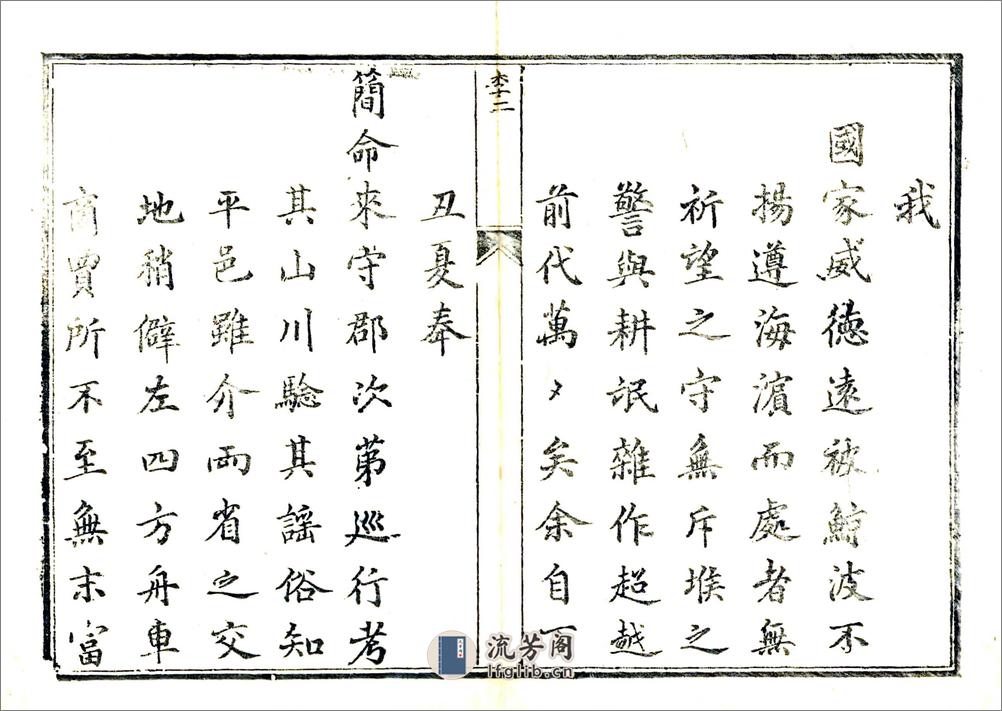 我
國家威德遠被鯨波不
揚遵海濵而處者無
祈望之守無斥堠之
警與耕氓雜作超越
前代萬〻矣余自丁
李二
丑夏奉
簡命來守郡次第巡行考
其山川驗其謡俗知
平邑雖介兩省之交
地稍僻左四方舟車
商賈所不至無末富
流芳阁
lfglib.cn